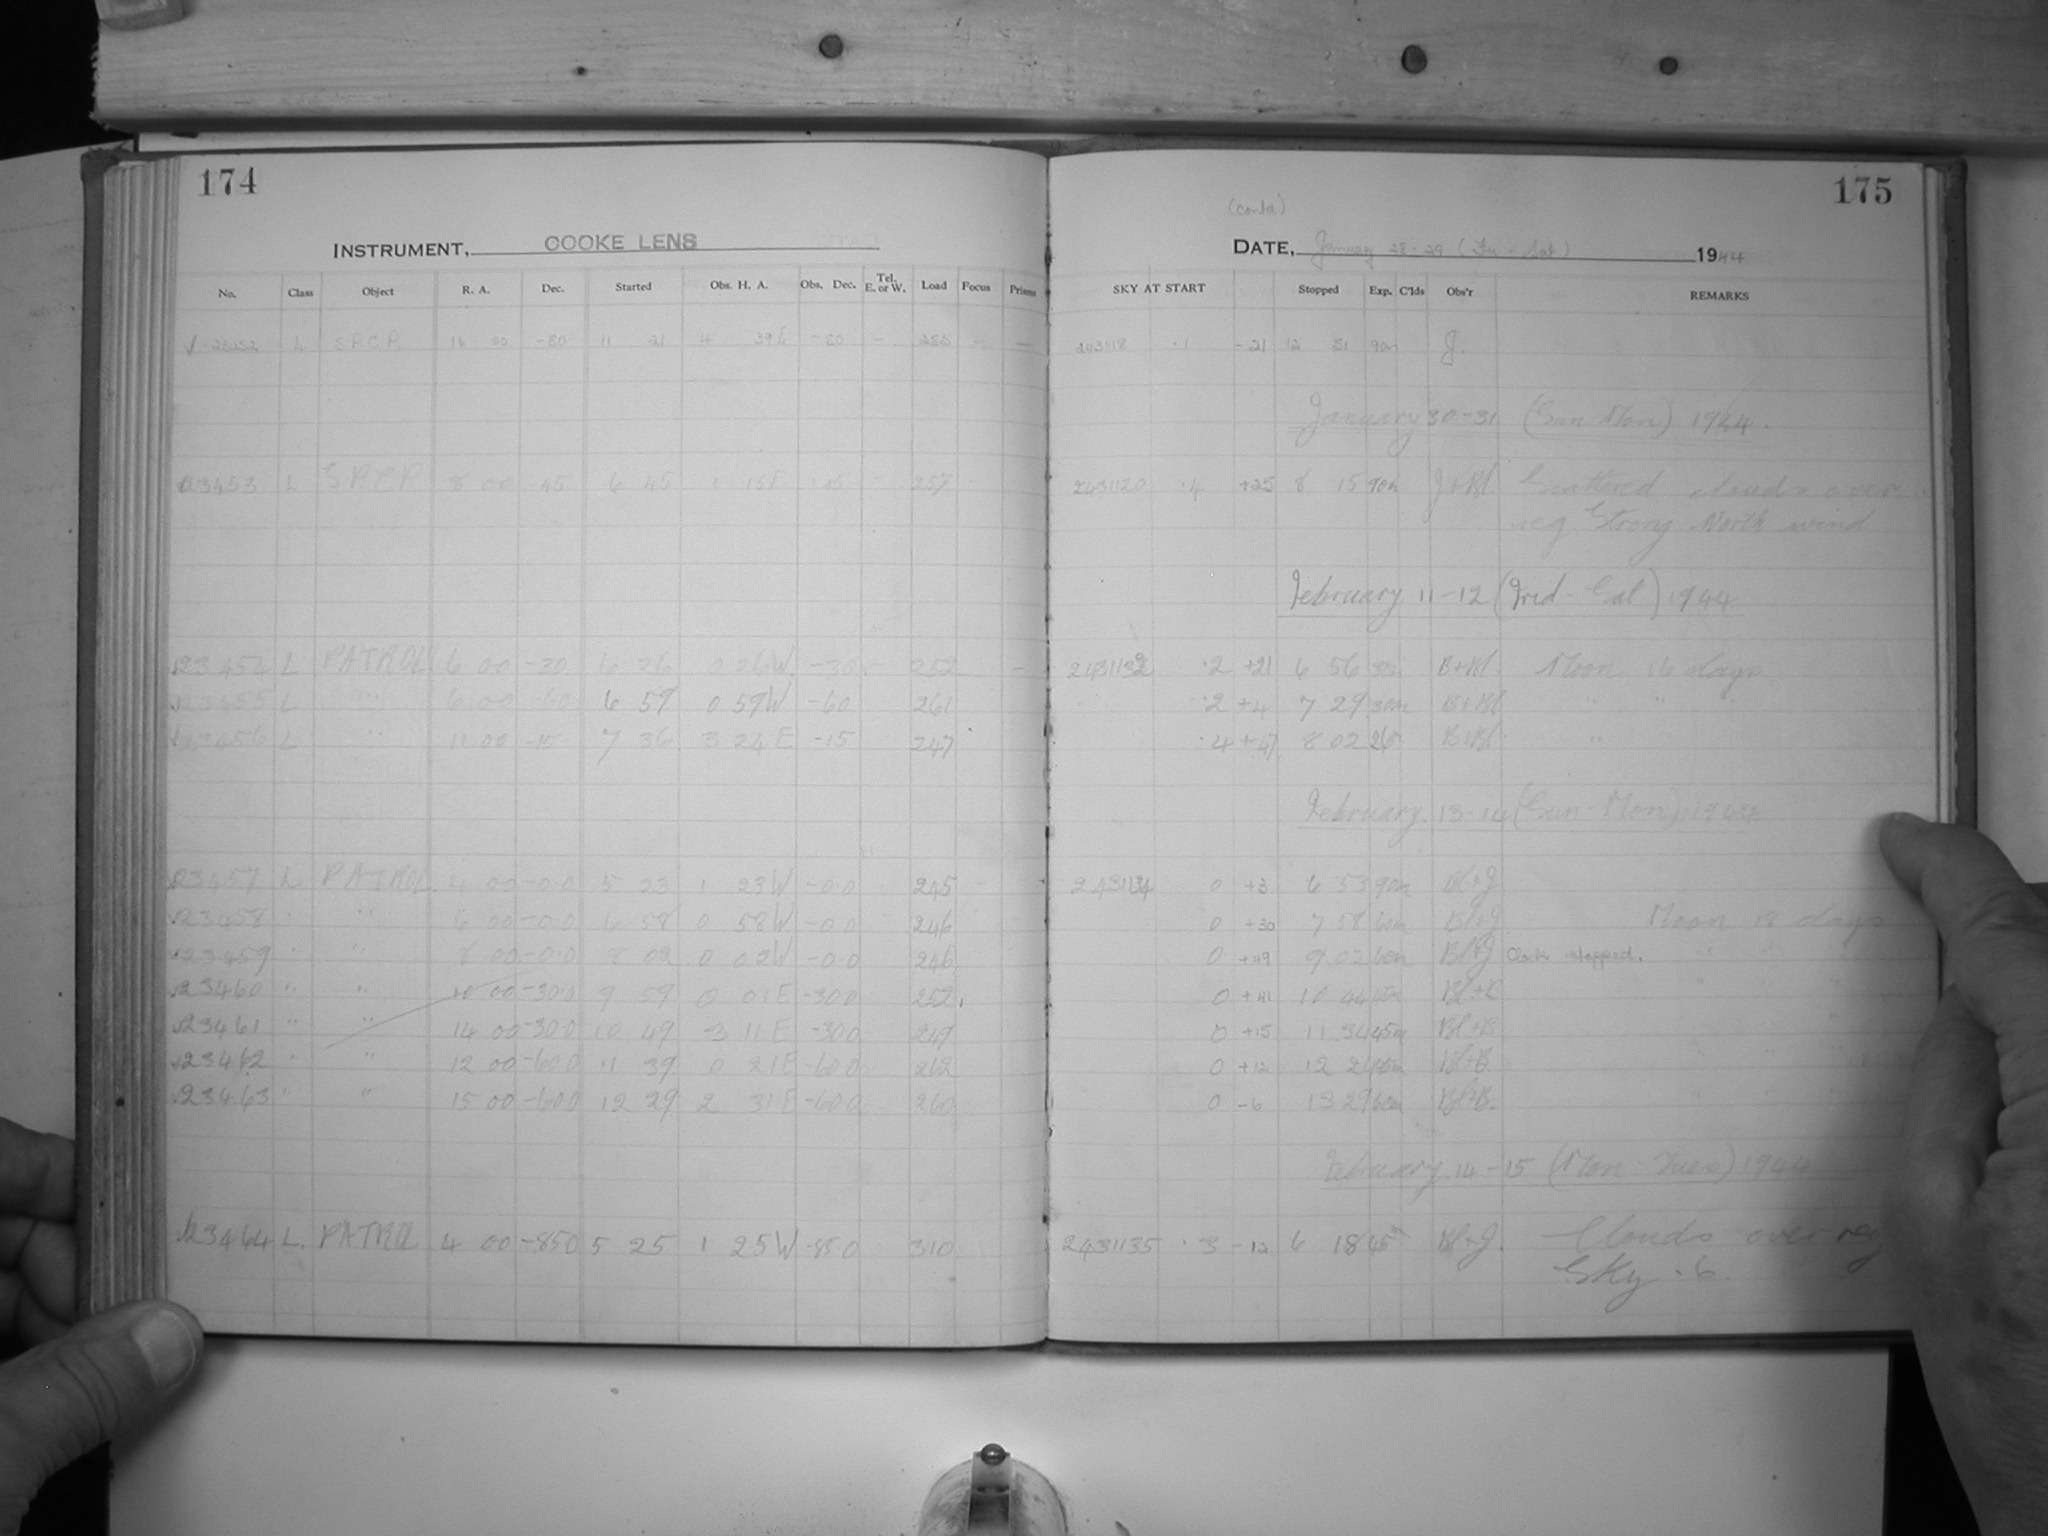 174
INSTRUMENT, COOKE LENS
No. Class Object R. A. Dec. Started Obs. H. A. Obs. Dec. Tel. E. or W. Load Focus Prisms
23452 L S.P.C.P. 16 00 -80 11 21 4 39E -80 - -
23453 L S.P.C.P. 8 00 -45 6 45 1 15E 257
23454 L PATROL 6 00 -30 6 26 0 26W -30 - 252 -
23455 L " 6 00 -60 6 59 0 59W -60 261
23456 L " 11 00 -15 7 36 3 24E -15 247
23457 L PATROL 4 00 -0.0 5 23 1 23W -0.0 245 -
23458 " " 6 00 -0.0 6 58 0 58W -0.0 246
23459 " " 8 00 -0.0 8 02 0 02W -0.0 246
23460 " " 10 00 -30.0 9 59 0 01E -30.0 252
23461 " " 14 00 -30.0 10 49 3 11E -30.0 249
23462 " " 12 00 -60.0 11 39 0 21E -60.0 262
23463 " " 15 00 -60.0 12 29 2 31E -60.0 260
23464 L. PATROL 4 00 -85.0 5 25 1 25W -85.0 310
175
(contd)
DATE, January 28-29 (Fri - Sat) 1944
SKY AT START Stopped Exp. C'lds Obs'r REMARKS
2431118 .1 -21 12 51 90m J.
January 30-31 (Sun-Mon) 1944.
2431120 .4 +25 8 15 90m J+Bl Scattered clouds over
reg. Strong North wind
February 11-12 (Frid-Sat) 1944
2431132 .2 +21 6 56 30m B+Bl Moon 16 days
.2 +4 7 29 30m B+Bl " "
.4 +47 8 02 26m B+Bl "
February 13-14 (Sun-Mon) 1944
2431134 0 +3 6 53 90m Bl+J
0 +30 7 58 60m Bl+J Moon 18 days
0 +49 9 02 60m Bl+J Clock stopped. " "
0 +41 10 44 45m Bl+B " "
0 +15 11 34 45m Bl+B "
0 +12 12 24 45m Bl+B. " "
0 -6 13 29 60m Bl+B. " "
February 14-15 (Mon-Tues) 1944
2431135 .3 -12 6 18 45m Bl+J. Clouds over reg
Sky .6.